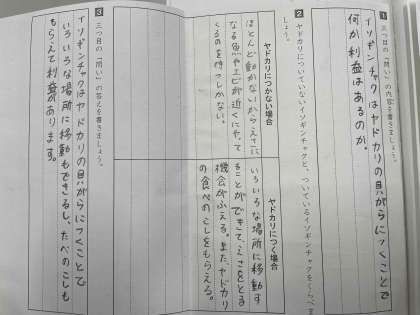 1 三つ目の「問い」の内容を書きましょう。
イソギンチャクはヤドカリの貝がらにつくことで
何か利益はあるのか。
2 ヤドカリについていないイソギンチャクと、ついているイソギンチャクをくらべま
しょう。
ヤドカリにつかない場合
ほとんど動かないからえさに
なる魚やエビが近くにやって
くるのを待つしかない。
ヤドカリにつく場合
いろいろな場所に移動す
ることができて、えさをとる
機会がふえる。また、ヤドカリ
の食べのこしをもらえる。
3 三つ目の「問い」の答えを書きましょう。
イソギンチャクはヤドカリの貝がらにつくことで
いろいろな場所に移動もできるし、たべのこしも
もらえて利益があります。